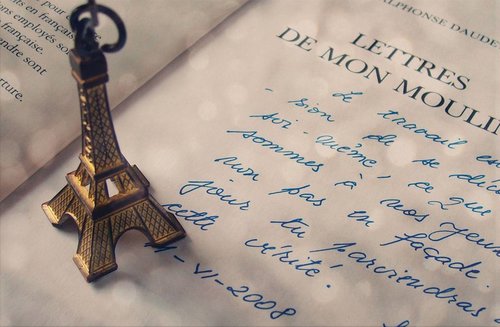 pour
ts en français
ons employés son
française.
endre sont
rture.
ALPHONSE DAUDE
LETTRES
DE MON MOULIN
Le travail en
- sion de se
soi-même, ce que
sommes à nos yeux
non pas en façade.
jour tu parviendras
cette vérité.
-VI-2008